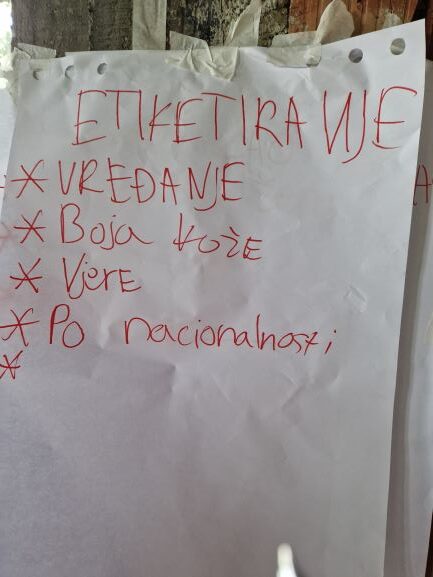 ETIKETIRANJE
* VREĐANJE
* Boja kože
* Vjere
* Po nacionalnosti
*